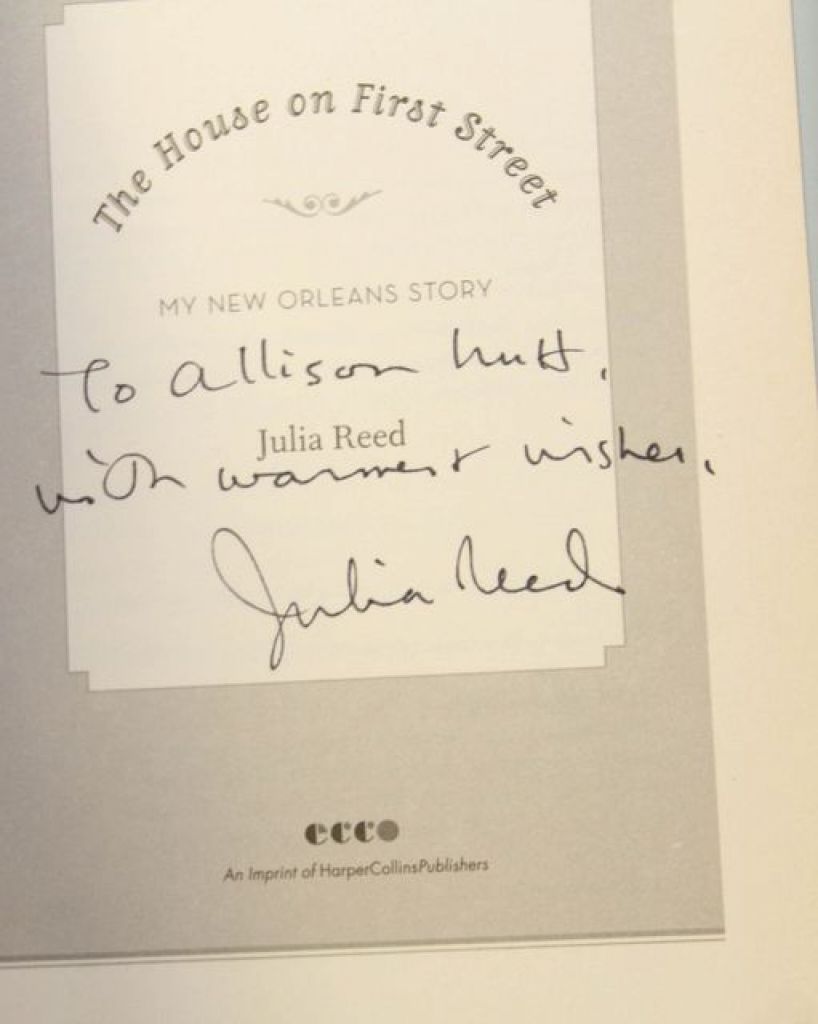 The House on First Street
MY NEW ORLEANS STORY
To Allison
Julia Reed
with warmest wishes,
Julia Reed
ecco
An Imprint of HarperCollinsPublishers